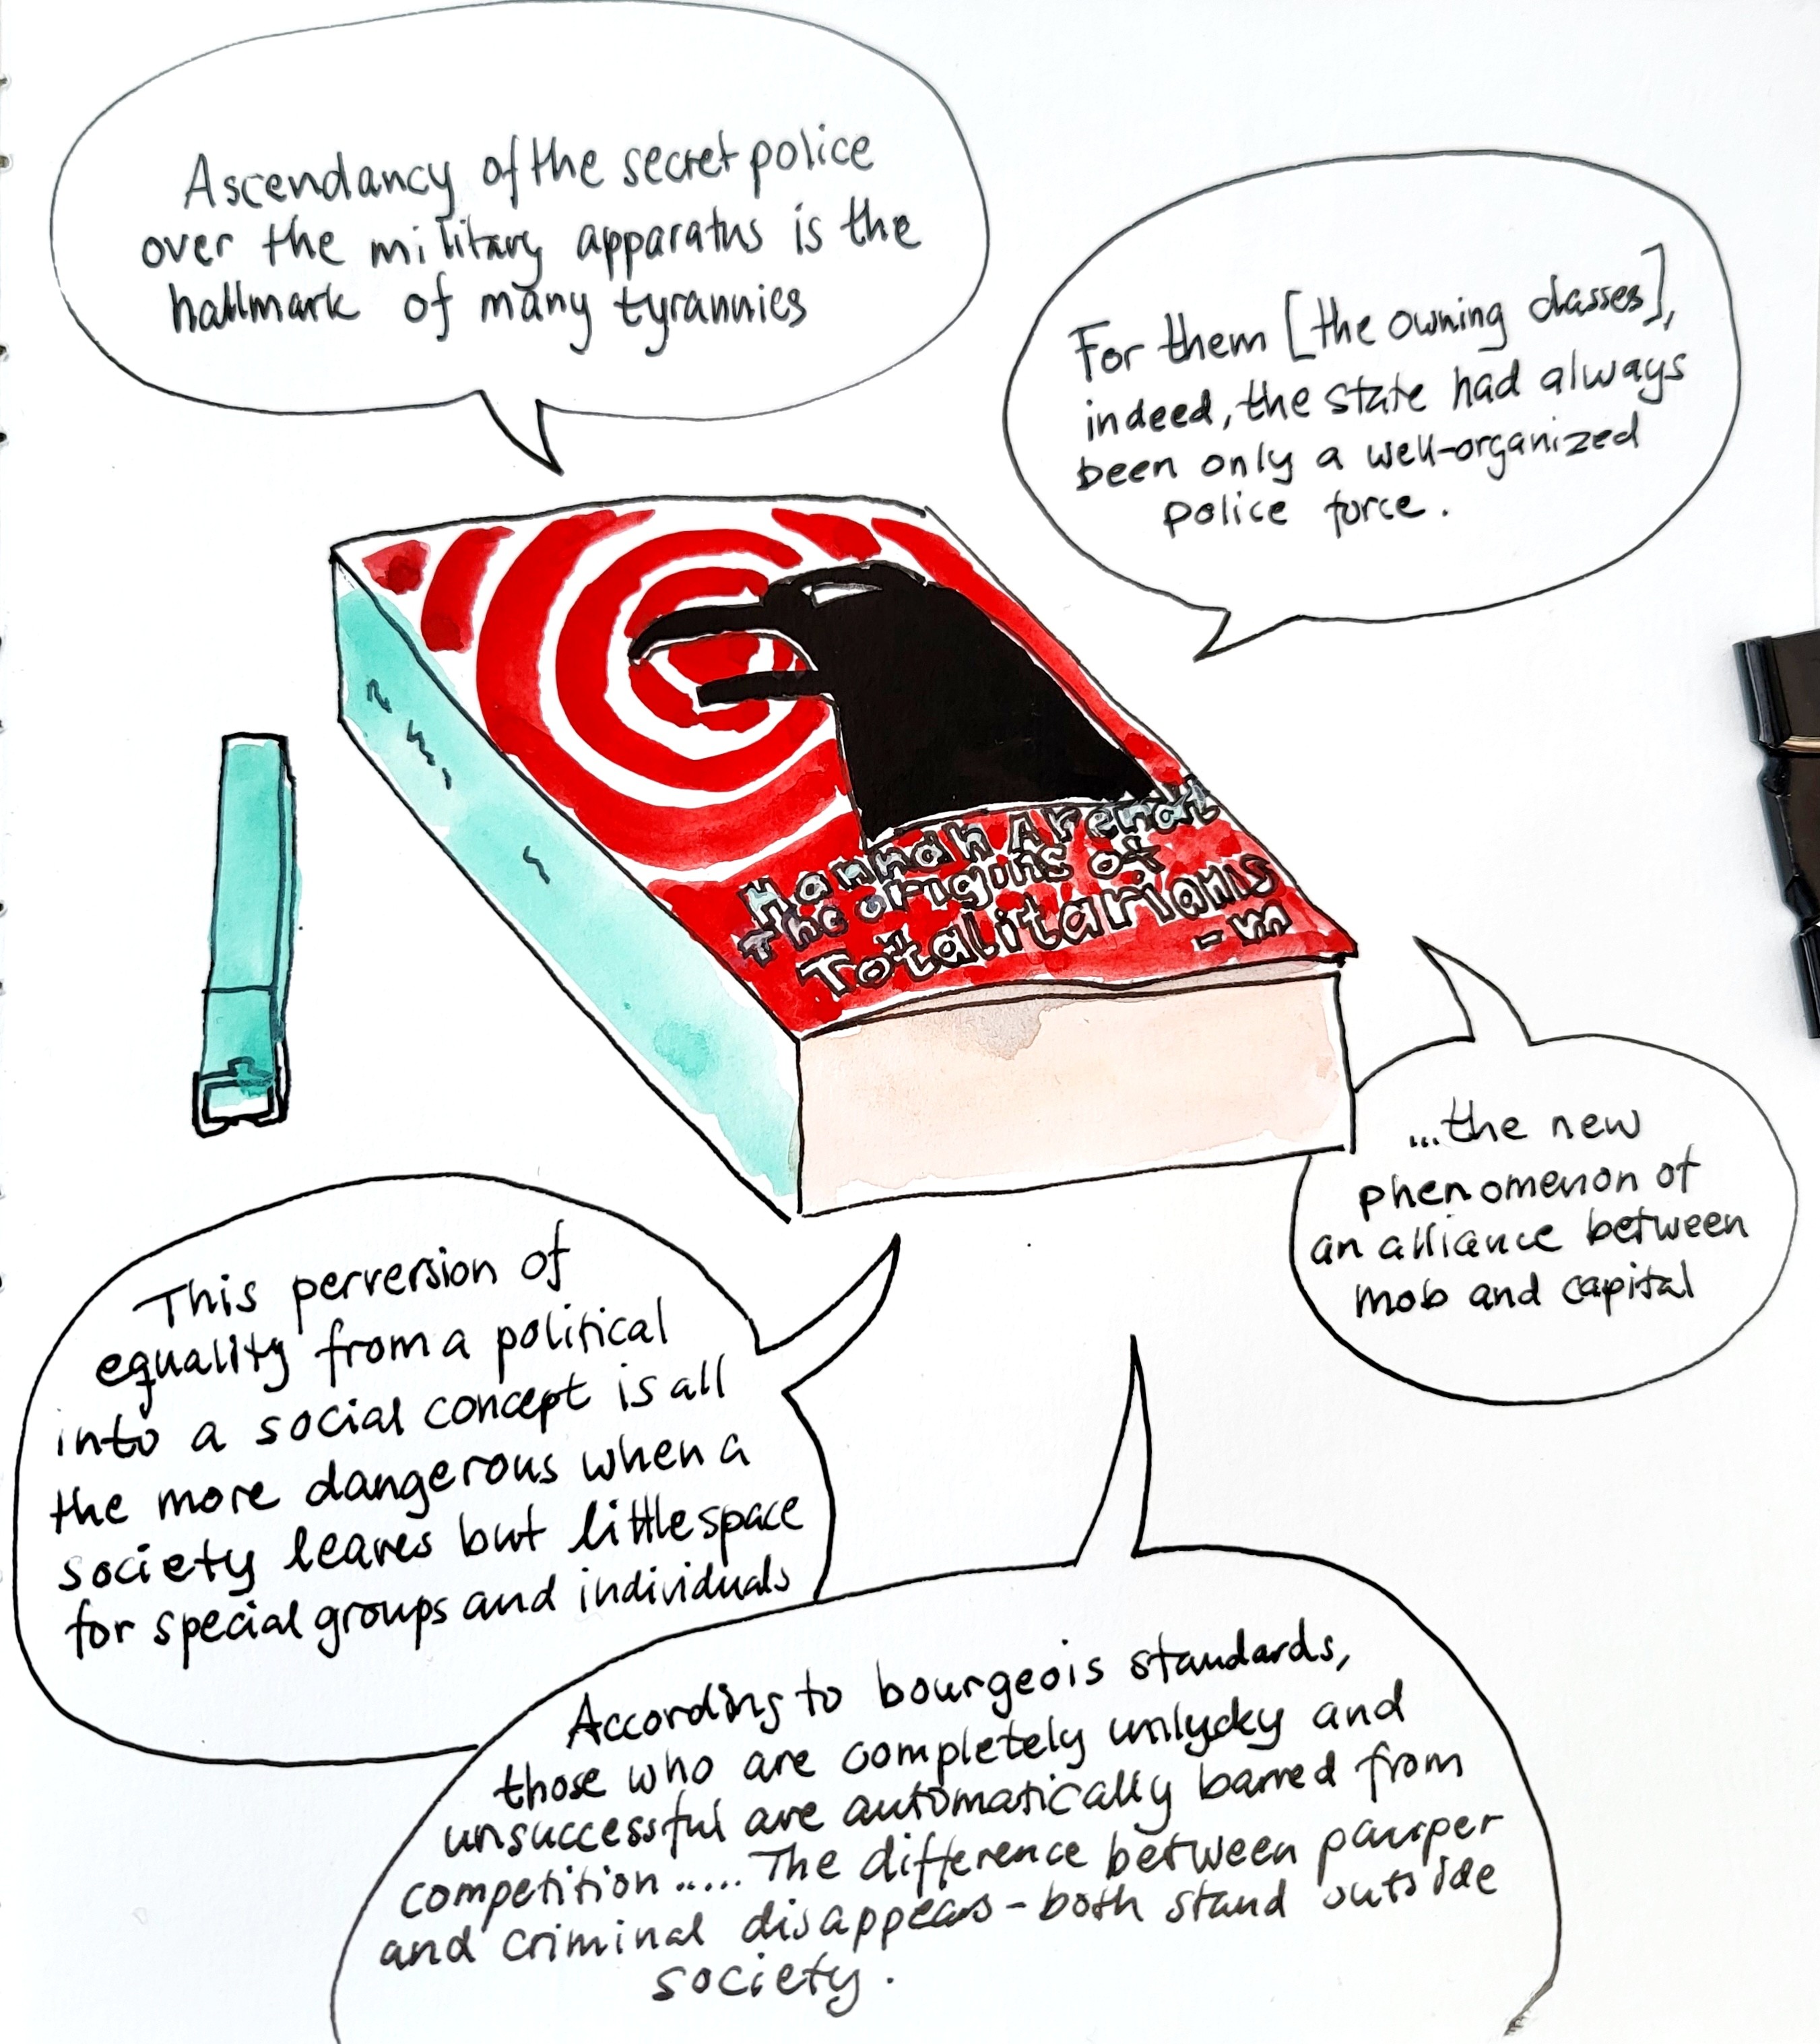 Ascendancy of the secret police
over the military apparatus is the
hallmark of many tyrannies
For them [the owning classes],
indeed, the state had always
been only a well-organized
police force.
Hannah Arendt
The origins of
Totalitarianis
-m
...the new
phenomenon of
an alliance between
mob and capital
This perversion of
equality from a political
into a social concept is all
the more dangerous when a
society leaves but little space
for special groups and individuals
According to bourgeois standards,
those who are completely unlucky and
unsuccessful are automatically barred from
competition ..... The difference between pauper
and criminal disappears - both stand outside
society.